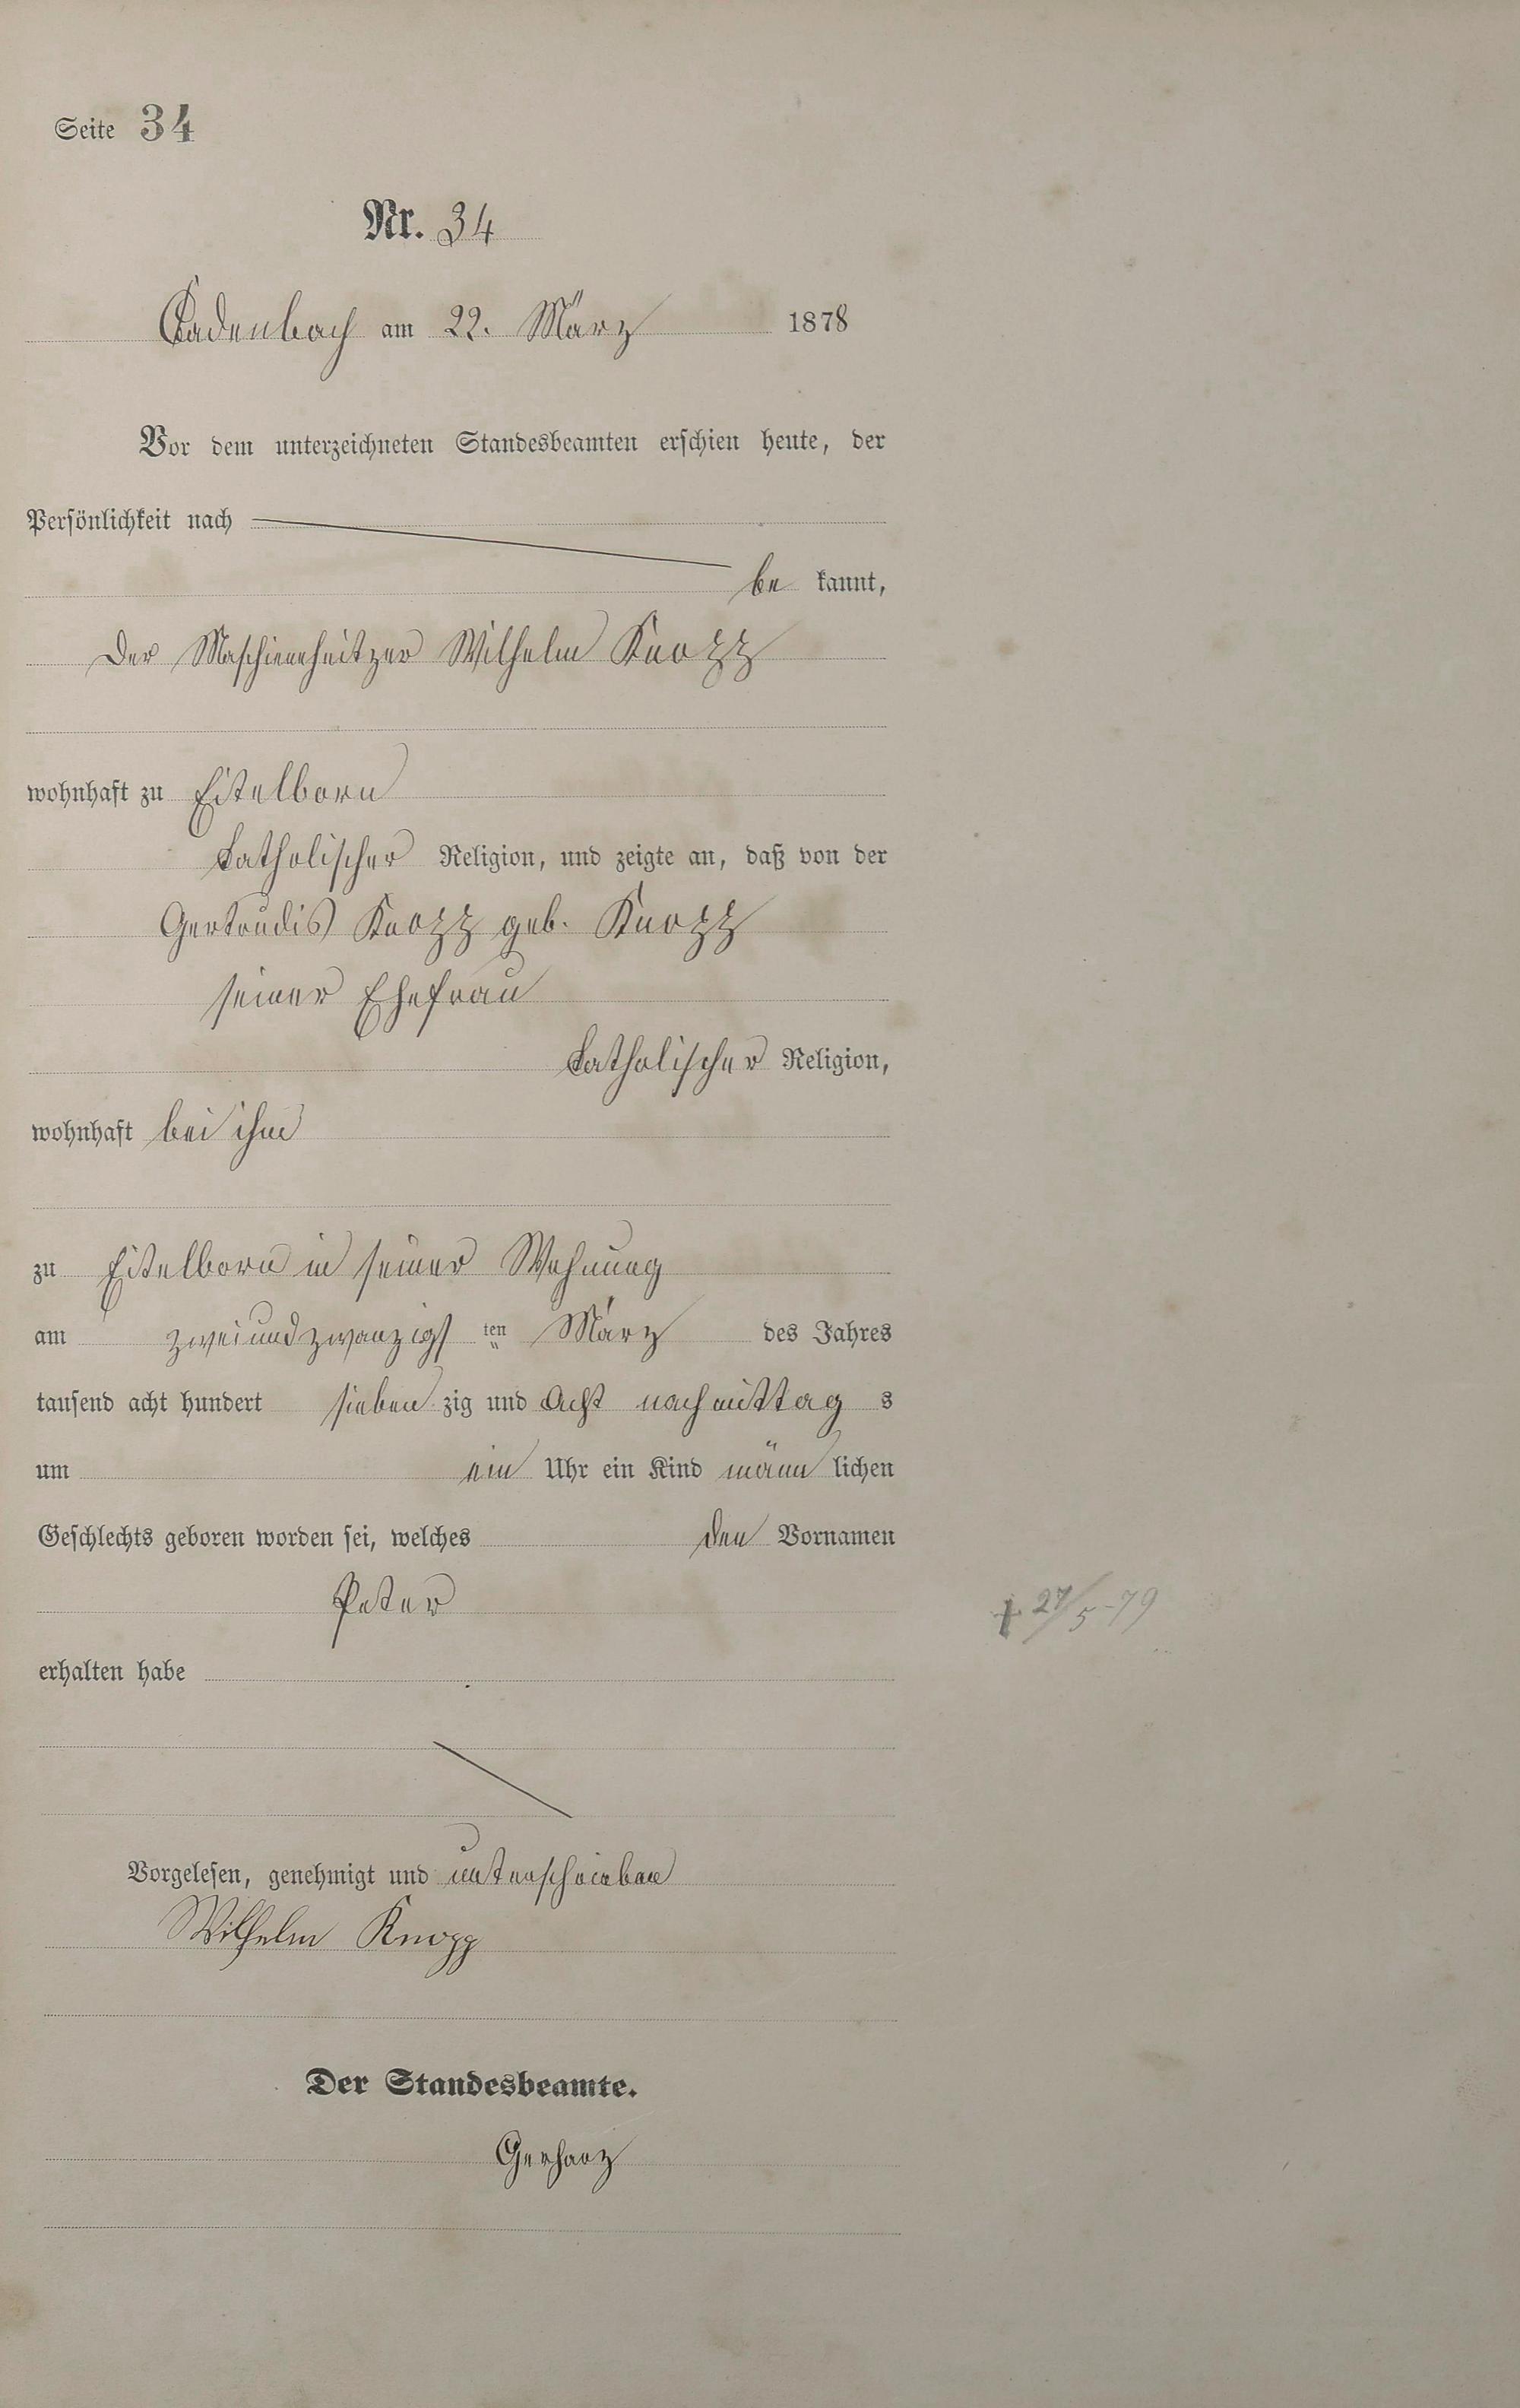 Seite 34
Nr. 34
Cadenbach am 22. März 1878
Vor dem unterzeichneten Standesbeamten erschien heute, der
Persönlichkeit nach
be kannt,
der Maschienheitzer Wilhelm Knopp
wohnhaft zu Eitelborn
katholischer Religion, und zeigte an, daß von der
Gertrudis Knopp geb. Knopp
seiner Ehefrau
katholischer Religion,
wohnhaft bei ihm
zu Eitelborn in seiner Wohnung
am zweiundzwanzigs ten März des Jahres
tausend acht hundert sieben zig und acht nachmittag s
um ein Uhr ein Kind männ lichen
Geschlechts geboren worden sei, welches den Vornamen
Peter
† 27/5-79
erhalten habe
Vorgelesen, genehmigt und unterschrieben
Wilhelm Knopp
Der Standesbeamte.
Gerharz